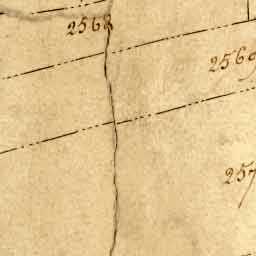 2568
2569
257